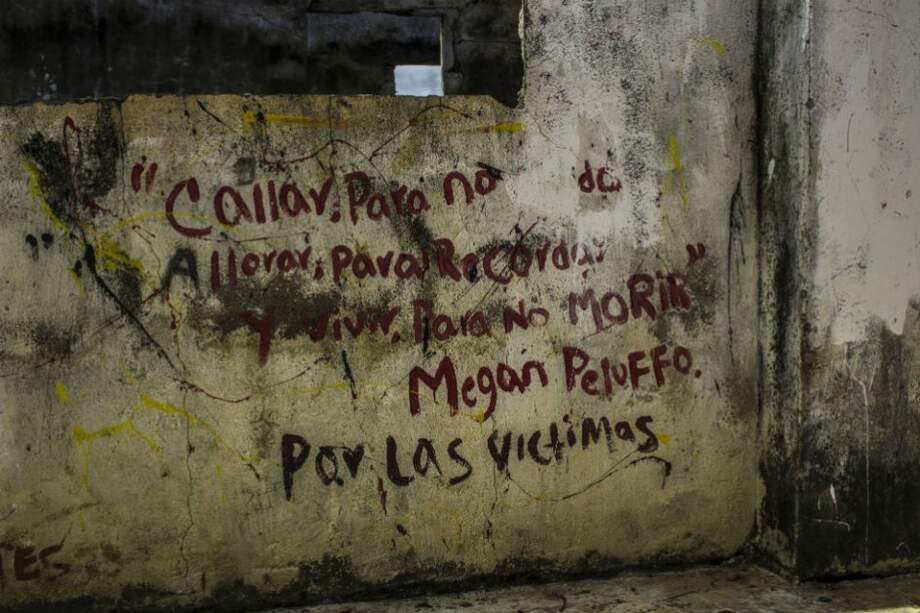 "Callar, Para no
llorar, para Recordar
y vivir, Para No MORIR"
Megan Peluffo.
Por Las victimas
TES